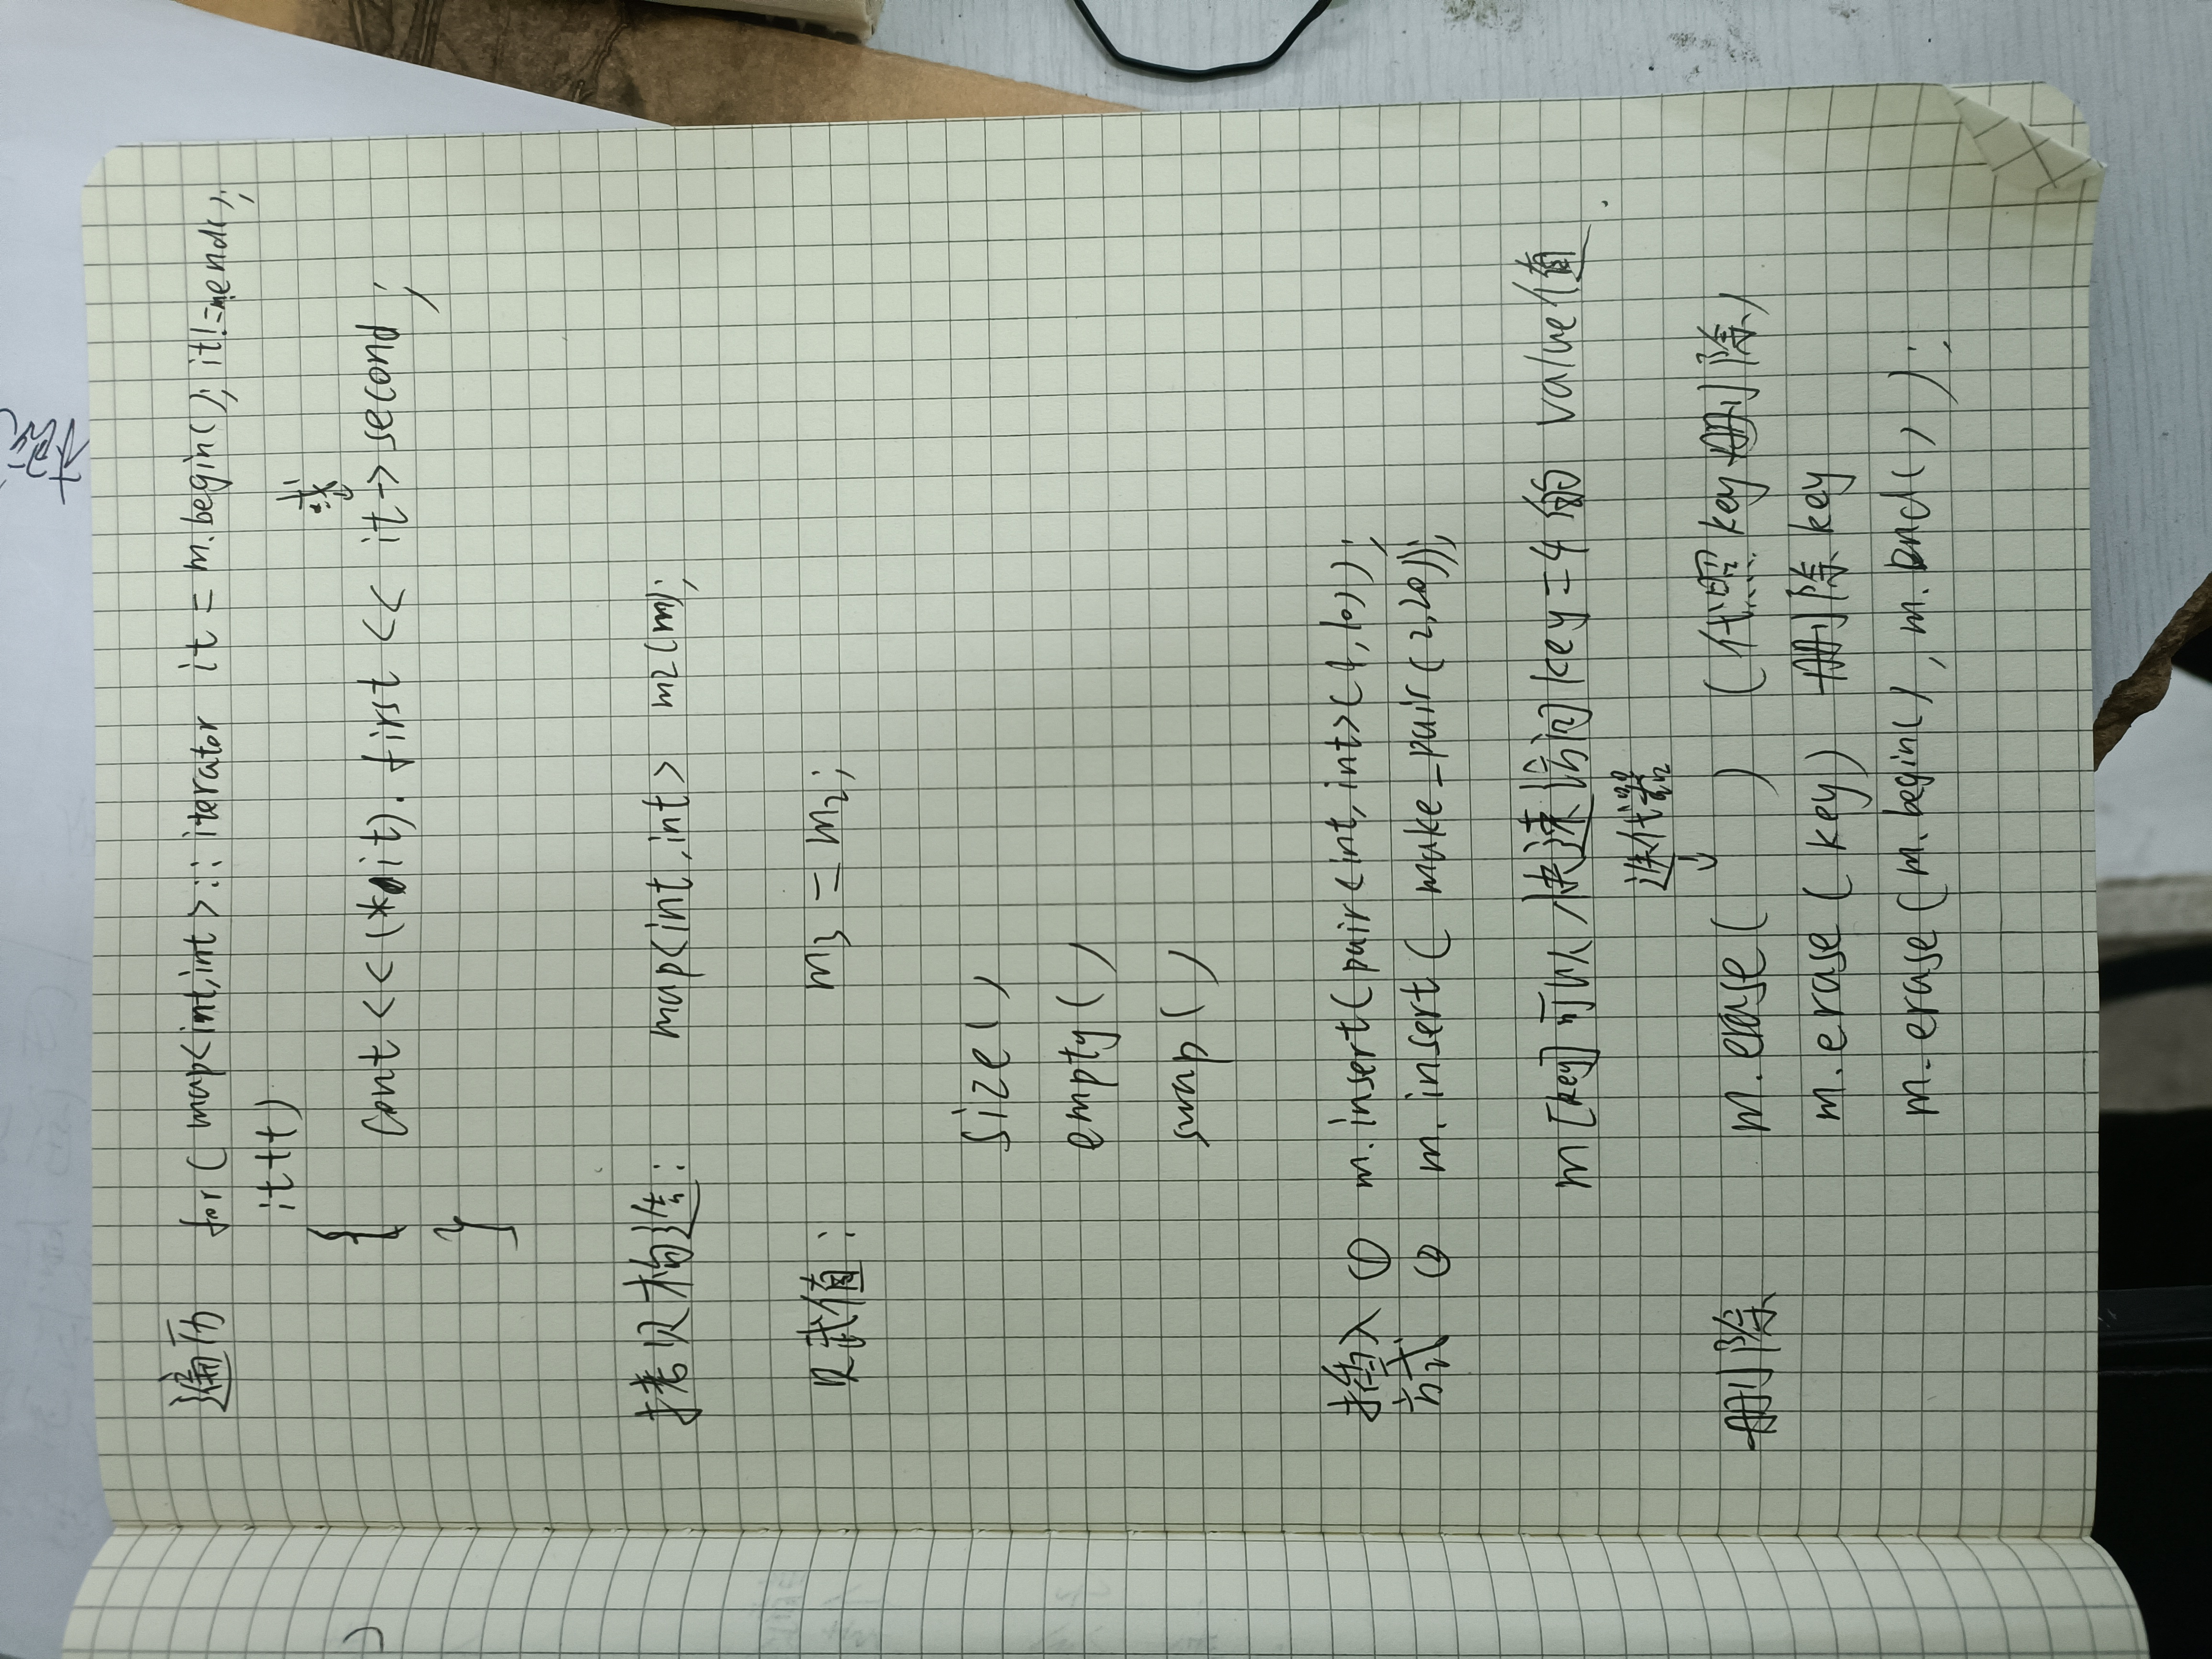 遍历 for( map<int,int>::iterator it = m.begin(); it!=m.end();
it++)
{ 或
cout << (*it).first << it->second;
}
拷贝构造: map<int,int> m2(m);
赋值: m3 = m2;
size()
empty()
swap()
插入 ① m.insert(pair<int,int>(4,10));
方式 ② m.insert( make_pair(2,20));
m[key]可以快速访问key=4的value值.
迭代器
↓
删除 m.erase( ) (代照key删除)
m.erase(key) 删除key
m.erase(m.begin(), m.end());